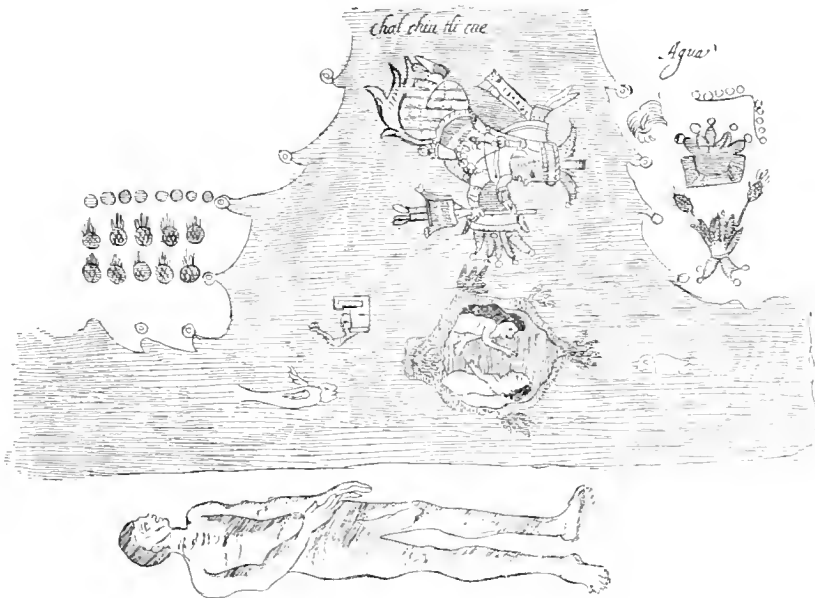 chal chiu tli cue
Agua